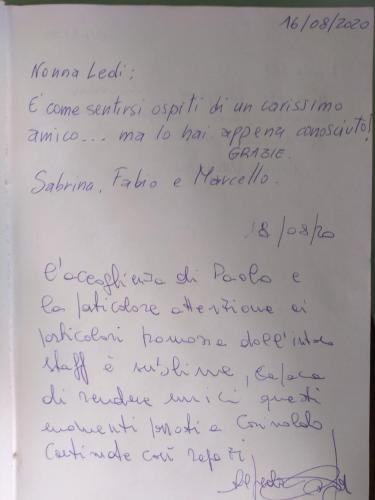 16/08/2020
Nonna Ledi:
È come sentirsi ospiti di un carissimo
amico... ma lo hai appena conosciuto!
GRAZIE.
Sabrina, Fabio e Marcello.
18/08/20
l'accoglienza di Paolo e
la particolare attenzione ai
particolari promossa dall'intero
staff è sublime, capace
di rendere unici questi
momenti passati a
Continuate così ragazzi